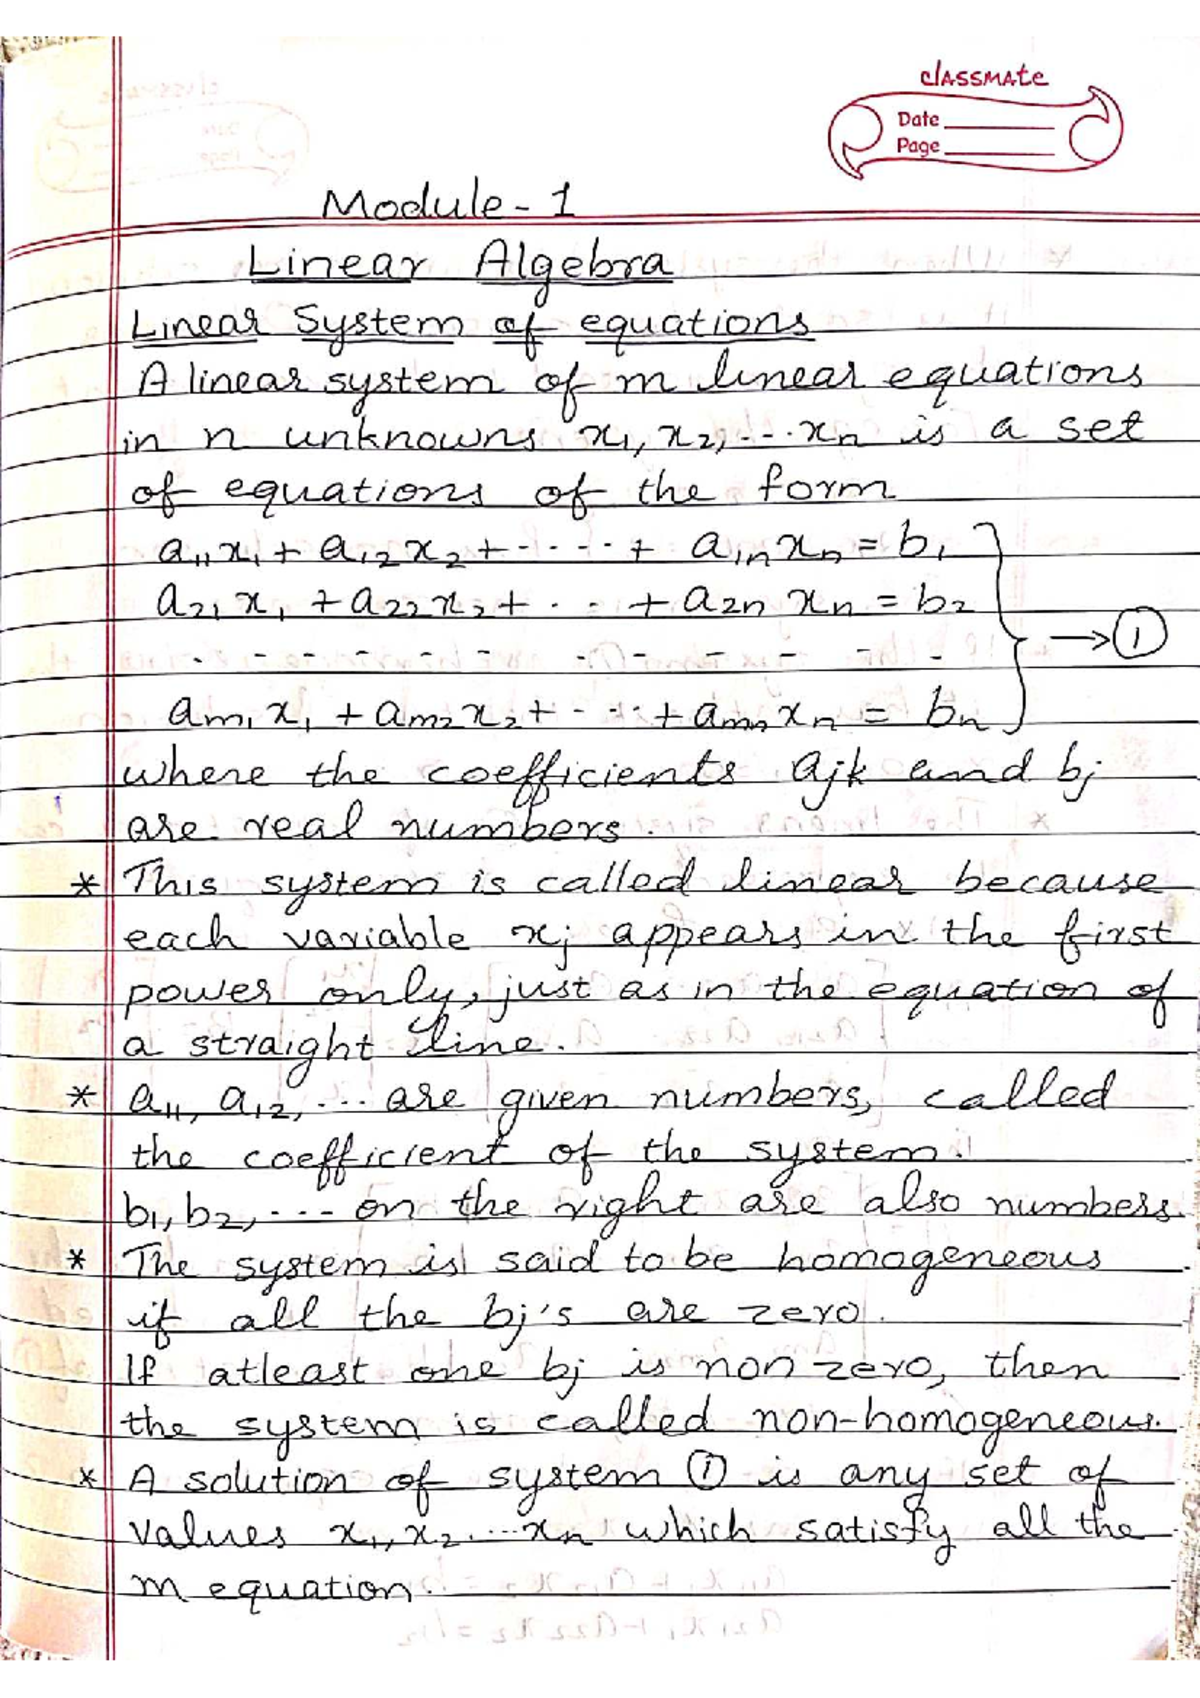 classmate
Date
Page
Module - 1
Linear Algebra
Linear System of equations
A linear system of m linear equations
in n unknowns x₁, x₂, ... xₙ is a set
of equations of the form
a₁₁x₁ + a₁₂x₂ + ---- + a₁ₙxₙ = b₁
a₂₁x₁ + a₂₂x₂ + - - - + a₂ₙxₙ = b₂
- - - - - - - - - - - - → ①
aₘ₁x₁ + aₘ₂x₂ + - - - + aₘₙxₙ = bₙ
where the coefficients ajk and bj
are real numbers.
* This system is called linear because
each variable xj appears in the first
power only, just as in the equation of
a straight line.
* a₁₁, a₁₂, --- are given numbers, called
the coefficient of the system.
b₁, b₂, --- on the right are also numbers.
* The system is said to be homogeneous
if all the bj's are zero.
If atleast one bj is non zero, then
the system is called non-homogeneous.
* A solution of system ① is any set of
values x₁, x₂ ... xₙ which satisfy all the
m equation.